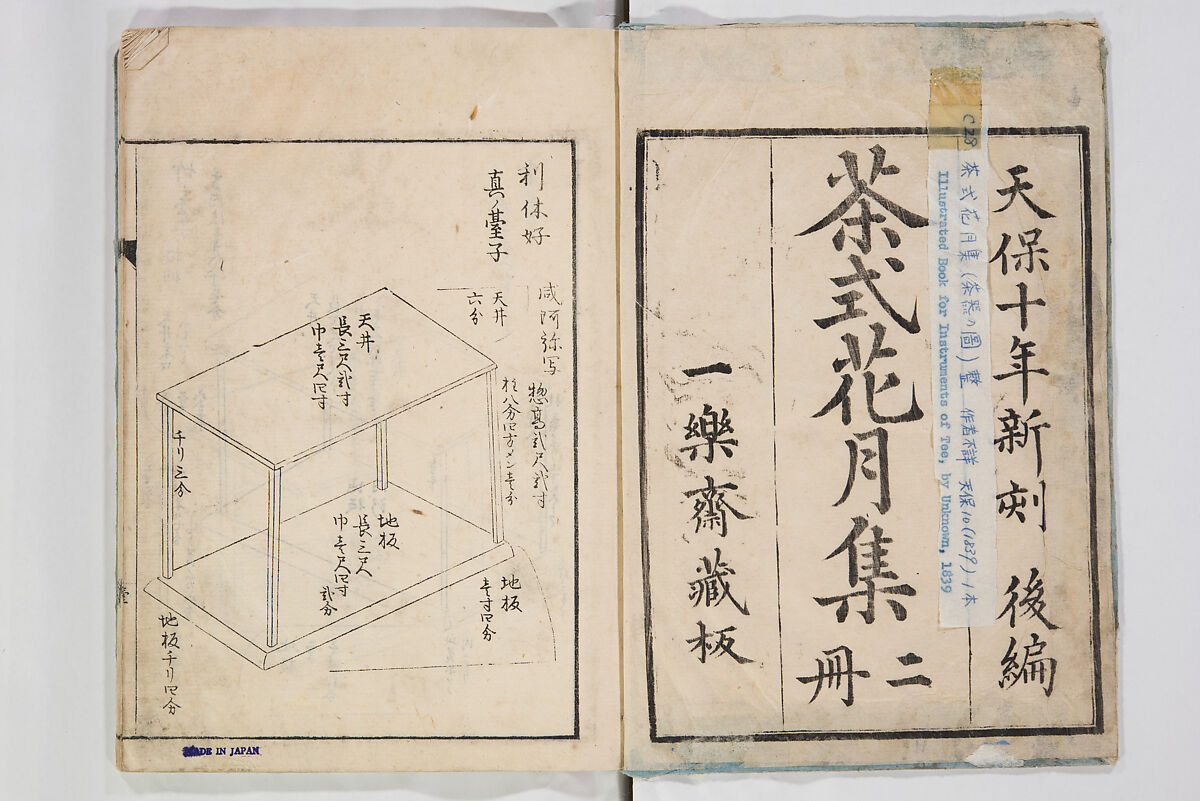 天保十年新刻 後編
茶式花月集
二冊
一樂齋藏板
C28 茶式花月集(茶器の圖)整 作者不詳 天保10(1839) 1本
Illustrated Book for Instruments of Tee, by Unknown, 1839
利休好
真ノ臺子
天井
六分
惣髙弐尺弐寸
柱八分四方メン壱分
天井
長三尺弐寸
巾壱尺四寸
チリ三分
地板
長三尺
巾壱尺四寸
弐分
地板
壱寸四分
地板チリ四分
臺
MADE IN JAPAN